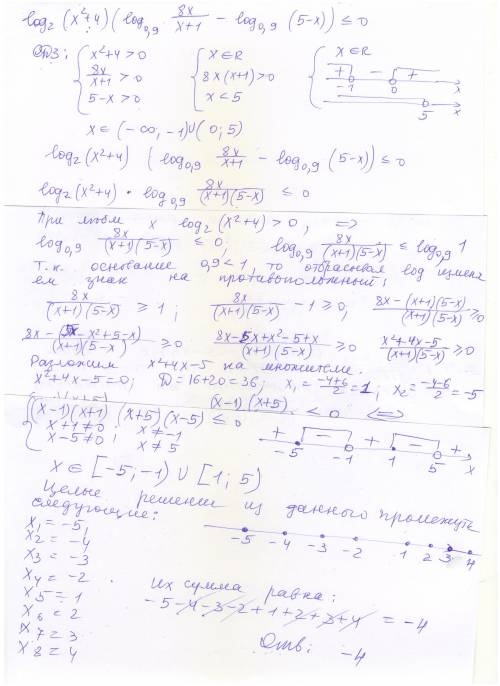 log₂(x²+4)(log₀,₉ 8x/(x+1) - log₀,₉(5-x)) ≤ 0
ОДЗ: { x²+4>0 { x∈R { x∈R
8x/(x+1) >0 8x(x+1)>0 + - + -1 0 x
5-x>0 x<5 5 x
x∈(-∞,-1)∪(0;5)
log₂(x²+4) (log₀,₉ 8x/(x+1) - log₀,₉(5-x)) ≤ 0
log₂(x²+4) • log₀,₉ 8x/((x+1)(5-x)) ≤ 0
При любом x log₂(x²+4)>0, ⇒
log₀,₉ 8x/((x+1)(5-x)) ≤ 0, log₀,₉ 8x/((x+1)(5-x)) ≤ log₀,₉ 1
Т.к. основание 0,9<1, то отбрасывая log изменя
ем знак на противоположный:
8x/((x+1)(5-x)) ≥ 1; 8x/((x+1)(5-x)) - 1 ≥ 0; (8x-(x+1)(5-x))/((x+1)(5-x)) ≥ 0
(8x-(5x-x²+5-x))/((x+1)(5-x)) ≥ 0 (8x-5x+x²-5+x)/((x+1)(5-x)) ≥ 0 (x²+4x-5)/((x+1)(5-x)) ≥ 0
Разложим x²+4x-5 на множители.
x²+4x-5=0; D=16+20=36; x₁=(-4+6)/2=1; x₂=(-4-6)/2=-5
(x-1)(x+5) <0 ⇔
{ (x-1)(x+1)(x+5)(x-5) ≤ 0
x+1≠0; x≠-1 + - + - +
x-5≠0 x≠5 -5 -1 1 5 x
x∈[-5;-1)∪[1;5)
Целые решения из данного промежутка
следующие:
x₁=-5,
x₂=-4 -5 -4 -3 -2 1 2 3 4
x₃=-3
x₄=-2
x₅=1 Их сумма равна:
x₆=2 -5-4-3-2+1+2+3+4 = -4
x₇=3
x₈=4 Отв: -4